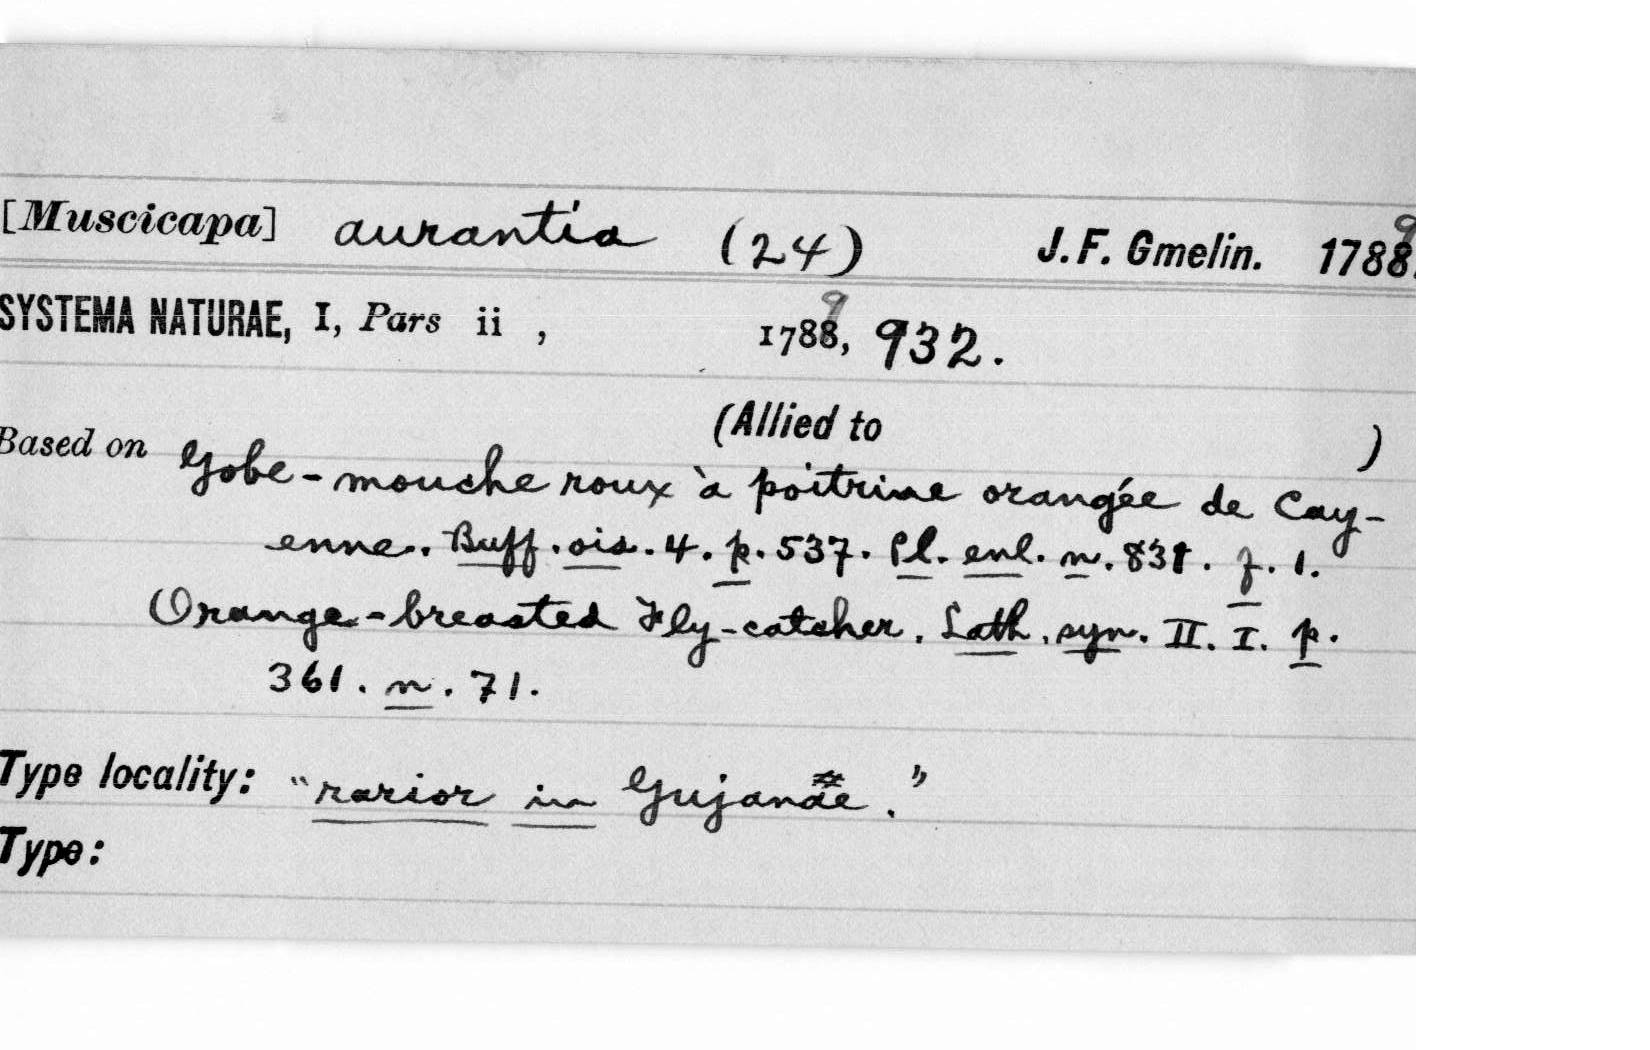 [Muscicapa] aurantia (24) J. F. Gmelin. 1788. 9
SYSTEMA NATURAE, I, Pars ii , 1788, 9 932.
(Allied to )
Based on Gobe-mouche roux à poitrine orangée de Cay-
enne. Buff. ois. 4. p. 537. Pl. enl. n. 831. f. 1.
Orange-breasted Fly-catcher. Lath. syn. II. I. p.
361. n. 71.
Type locality: "rarior in Gujanae."
Type: